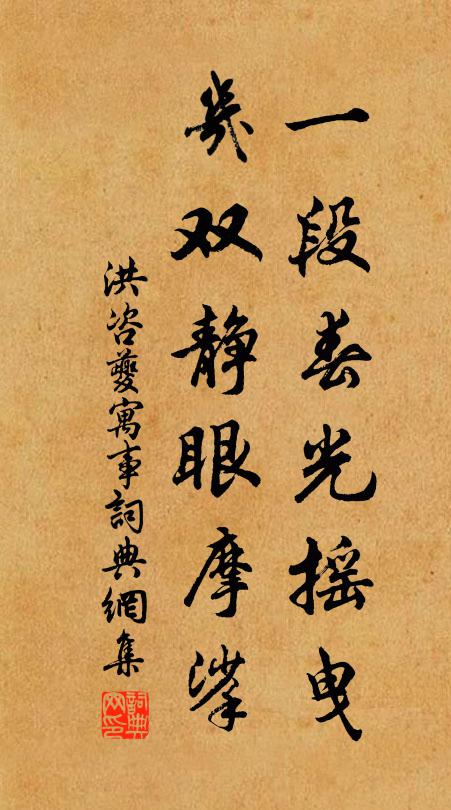 一段春光摇曳
几双静眼摩挲
洪咨夔寓事詞典網集
詞典网印